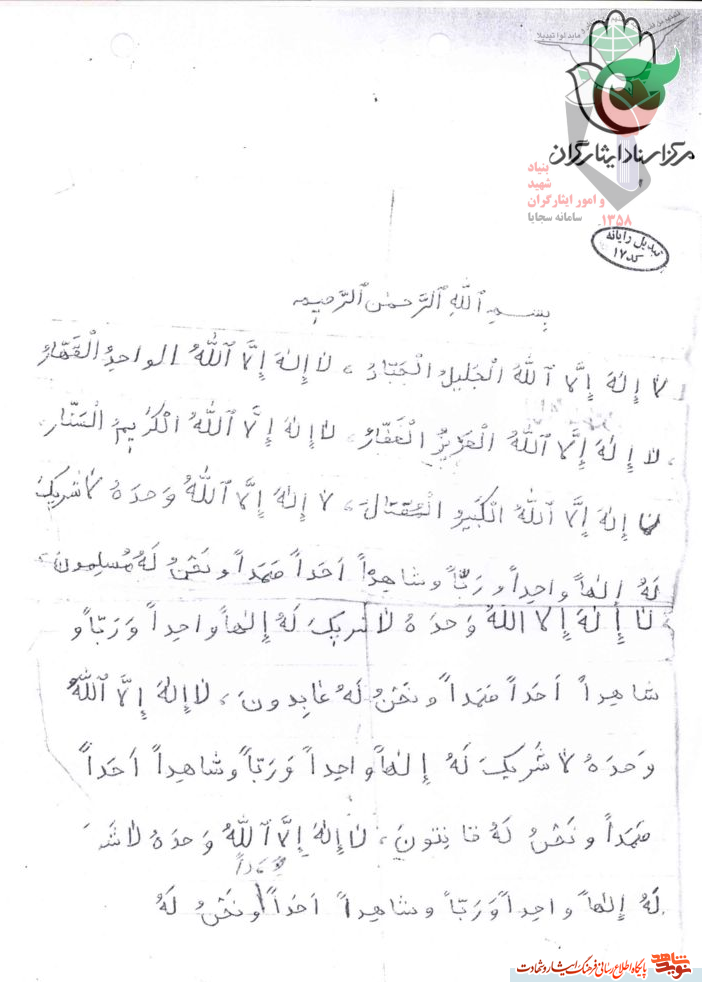 مرکز اسناد ایثارگران
بنیاد
شهید
و امور ایثارگران
سامانه سجایا
۱۳۵۸
تبدیل رایانه
کد ۱۷
بِسمِ ٱللّٰهِ ٱلرَّحمٰن ٱلرَّحیم
لا إِلٰهَ إِلَّا ٱللّٰهُ الْجَلیلُ الْجَبّارُ، لا إِلٰهَ إِلَّا ٱللّٰهُ الواحِدُ الْقَهّارُ
، لا إِلٰهَ إِلَّا ٱللّٰهُ الْعَزیزُ الْغَفّارُ، لا إِلٰهَ إِلَّا ٱللّٰهُ الْکَریمُ السَتّار
إِلٰهَ إِلَّا ٱللّٰهُ الْکَبیرُ الْمُتَعالَ، لا إِلٰهَ إِلَّا ٱللّٰهُ وَحدَهُ لا شَریکَ
لَهُ إِلٰهاً واحِداً و رَبّاً و شاهِداً اَحَداً صَمَداً و نَحْنُ لَهُ مُسلِمونَ،
لا إِلٰهَ إِلا اللّٰهُ وَحدَهُ لا شریکَ لَهُ إِلٰهاً واحِداً وَ رَبّاً و
شاهِداً اَحَداً صَمَداً و نَحنُ لَهُ عابِدونَ، لا إِلٰهَ إِلَّا ٱللّٰهُ
وَحدَهُ لا شَریکَ لَهُ إِلٰهاً واحِداً وَ رَبّاً و شاهِداً اَحَداً
صَمَداً و نَحْنُ لَهُ قانِتونَ، لا إِلٰهَ إِلَّا ٱللّٰهُ وَحدَهُ لا شَـ
صَمَداً
لَهُ إِلٰهاً واحِداً وَ رَبّاً و شاهِداً اَحَداً و نَحْنُ لَهُ
نوید شاهد پایگاه اطلاع رسانی فرهنگ ایثار و شهادت